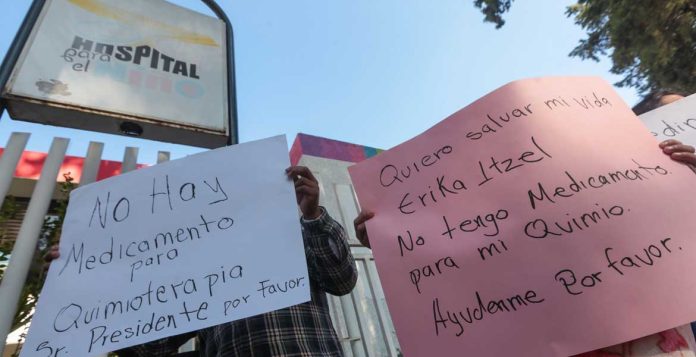 HOSPITAL
para
el
NIÑO
No Hay
Medicamento
para
Quimioterapia
Sr. Presidente por Favor.
Quiero salvar mi vida
Erika Itzel
No tengo Medicamento
para mi Quimio.
Ayudenme Porfavor.